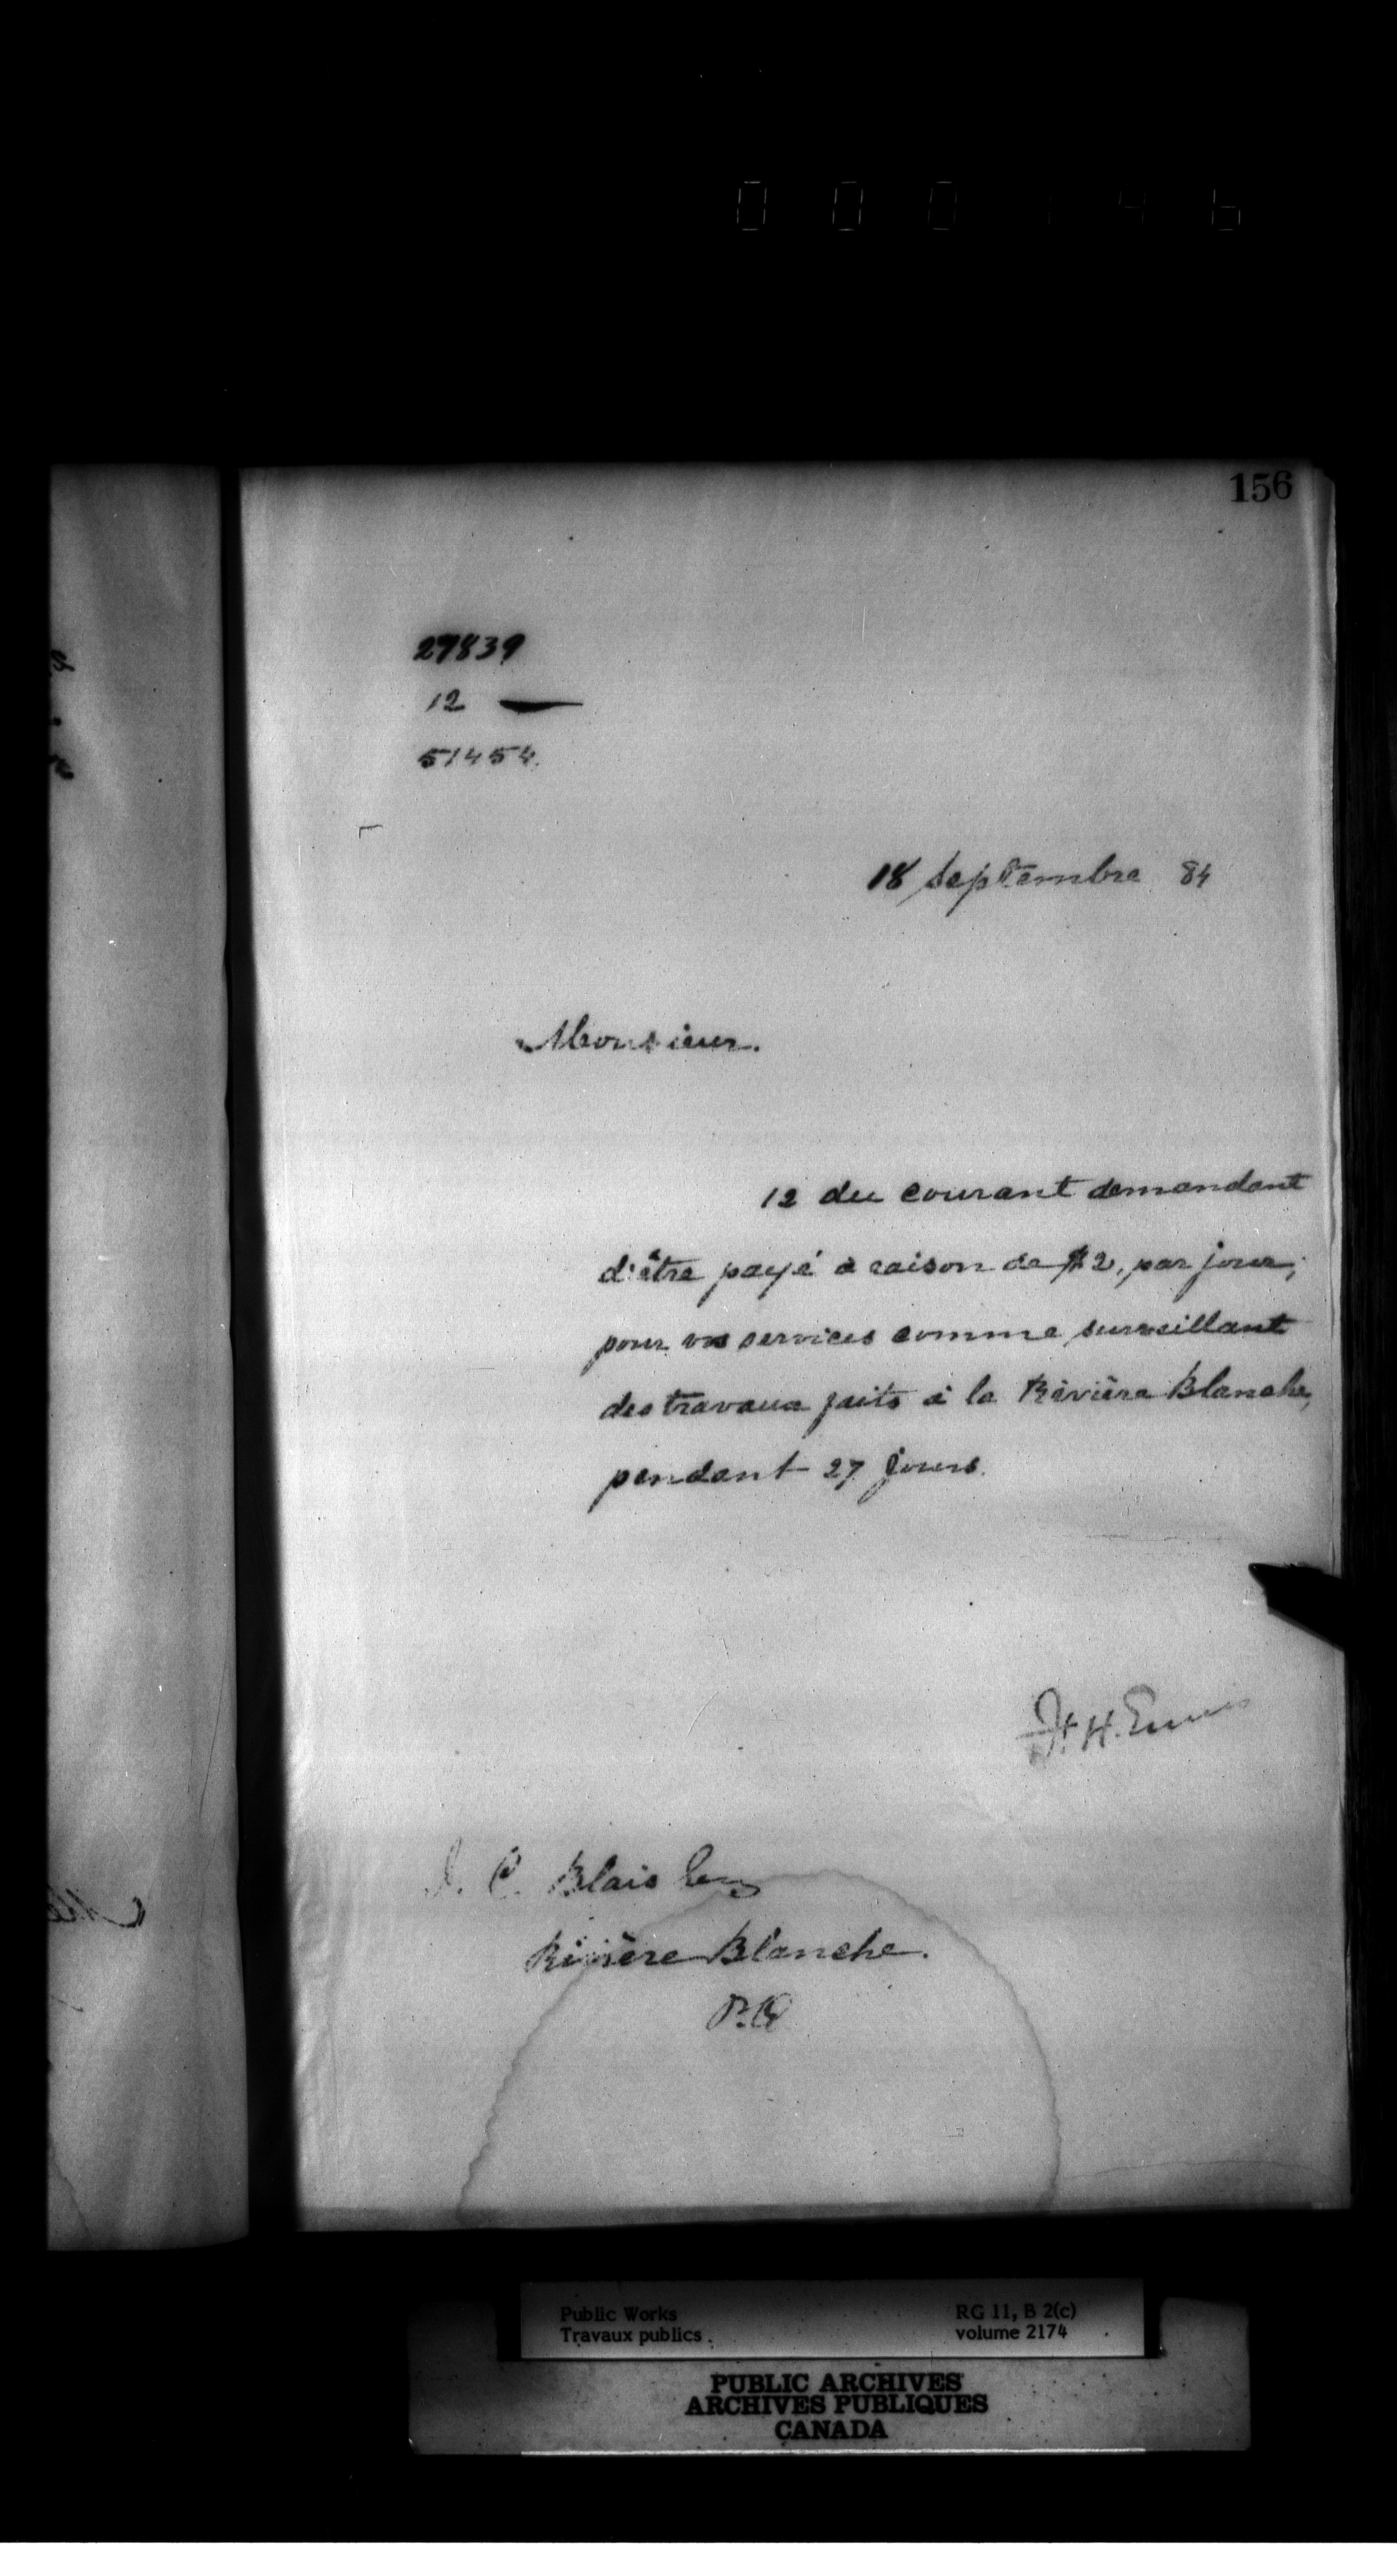 0 0 0 1 4 6
156
27839
12 —
51454.
18 Septembre 84
Monsieur.
12 du courant demandant
d'être payé à raison de $2, par jour,
pour vos services comme surveillant
des travaux faits à la Rivière Blanche,
pendant 27 jours.
F. H. Ennis
J. C. Blais
Rivière Blanche.
P.Q
Public Works
Travaux publics
RG 11, B 2(c)
volume 2174
PUBLIC ARCHIVES
ARCHIVES PUBLIQUES
CANADA